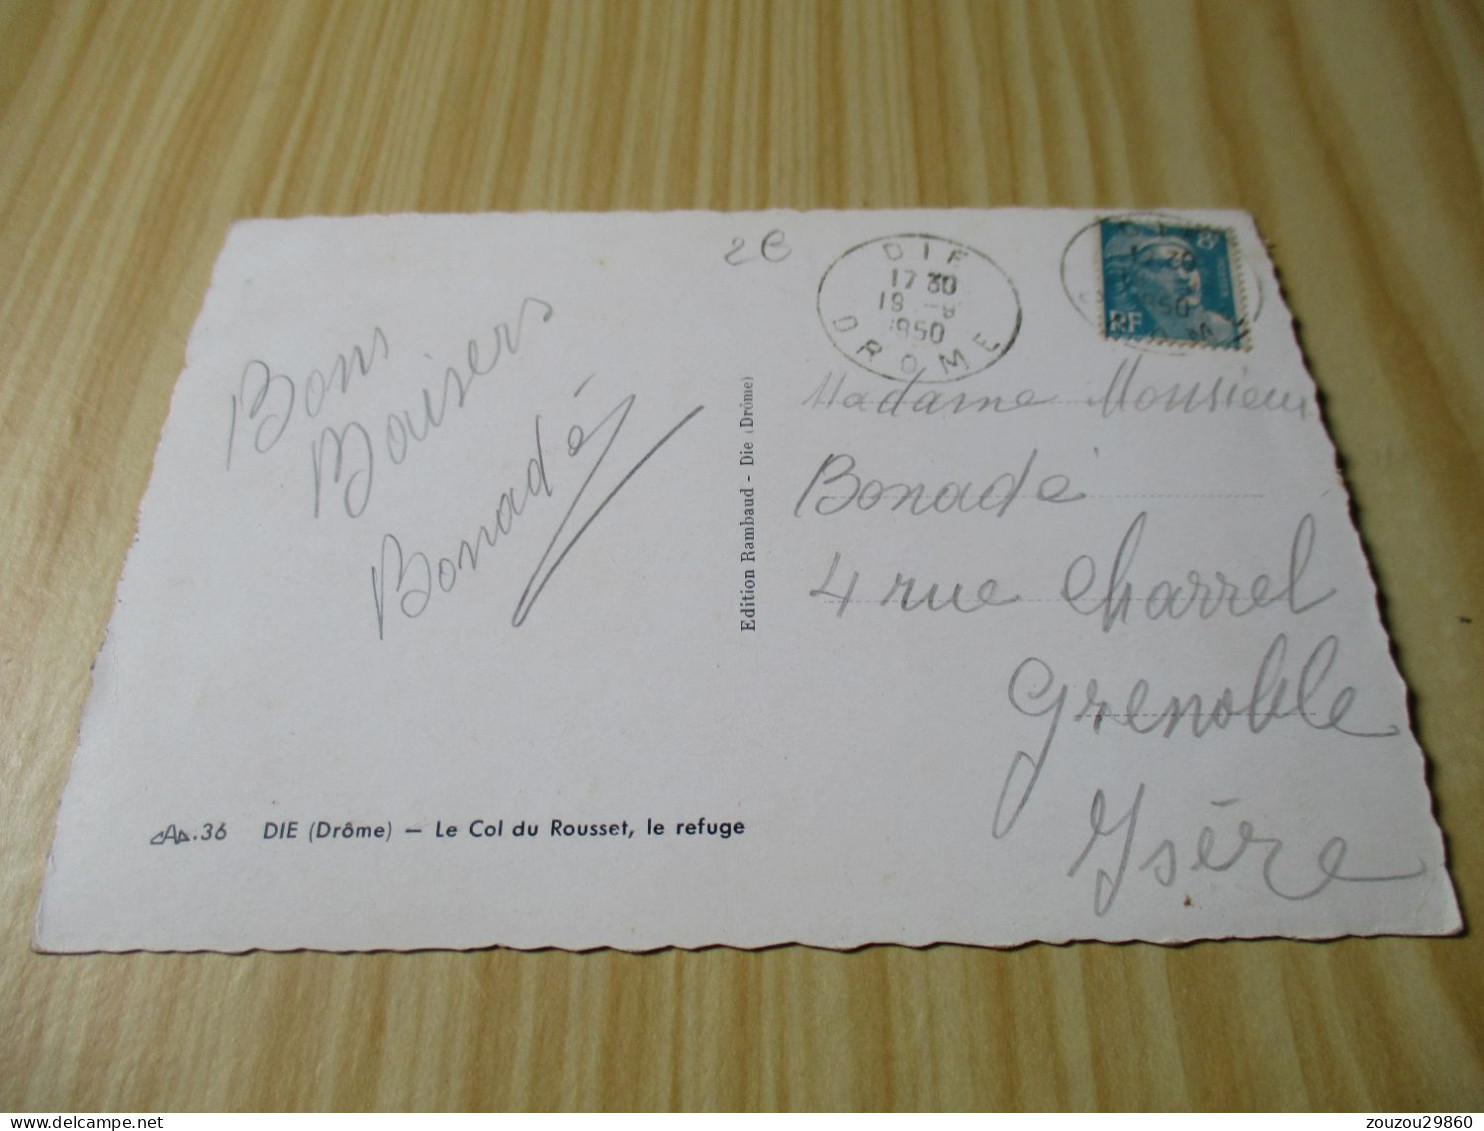 2€
DIE
17 30
18 -8
1950
DROME
8F
RF
Bons
Baisers
Bonadé
Madame Monsieur
Bonadé
4 rue Charrel
Grenoble
Isère
Edition Rambaud - Die (Drôme)
.36 DIE (Drôme) — Le Col du Rousset, le refuge
zouzou29860